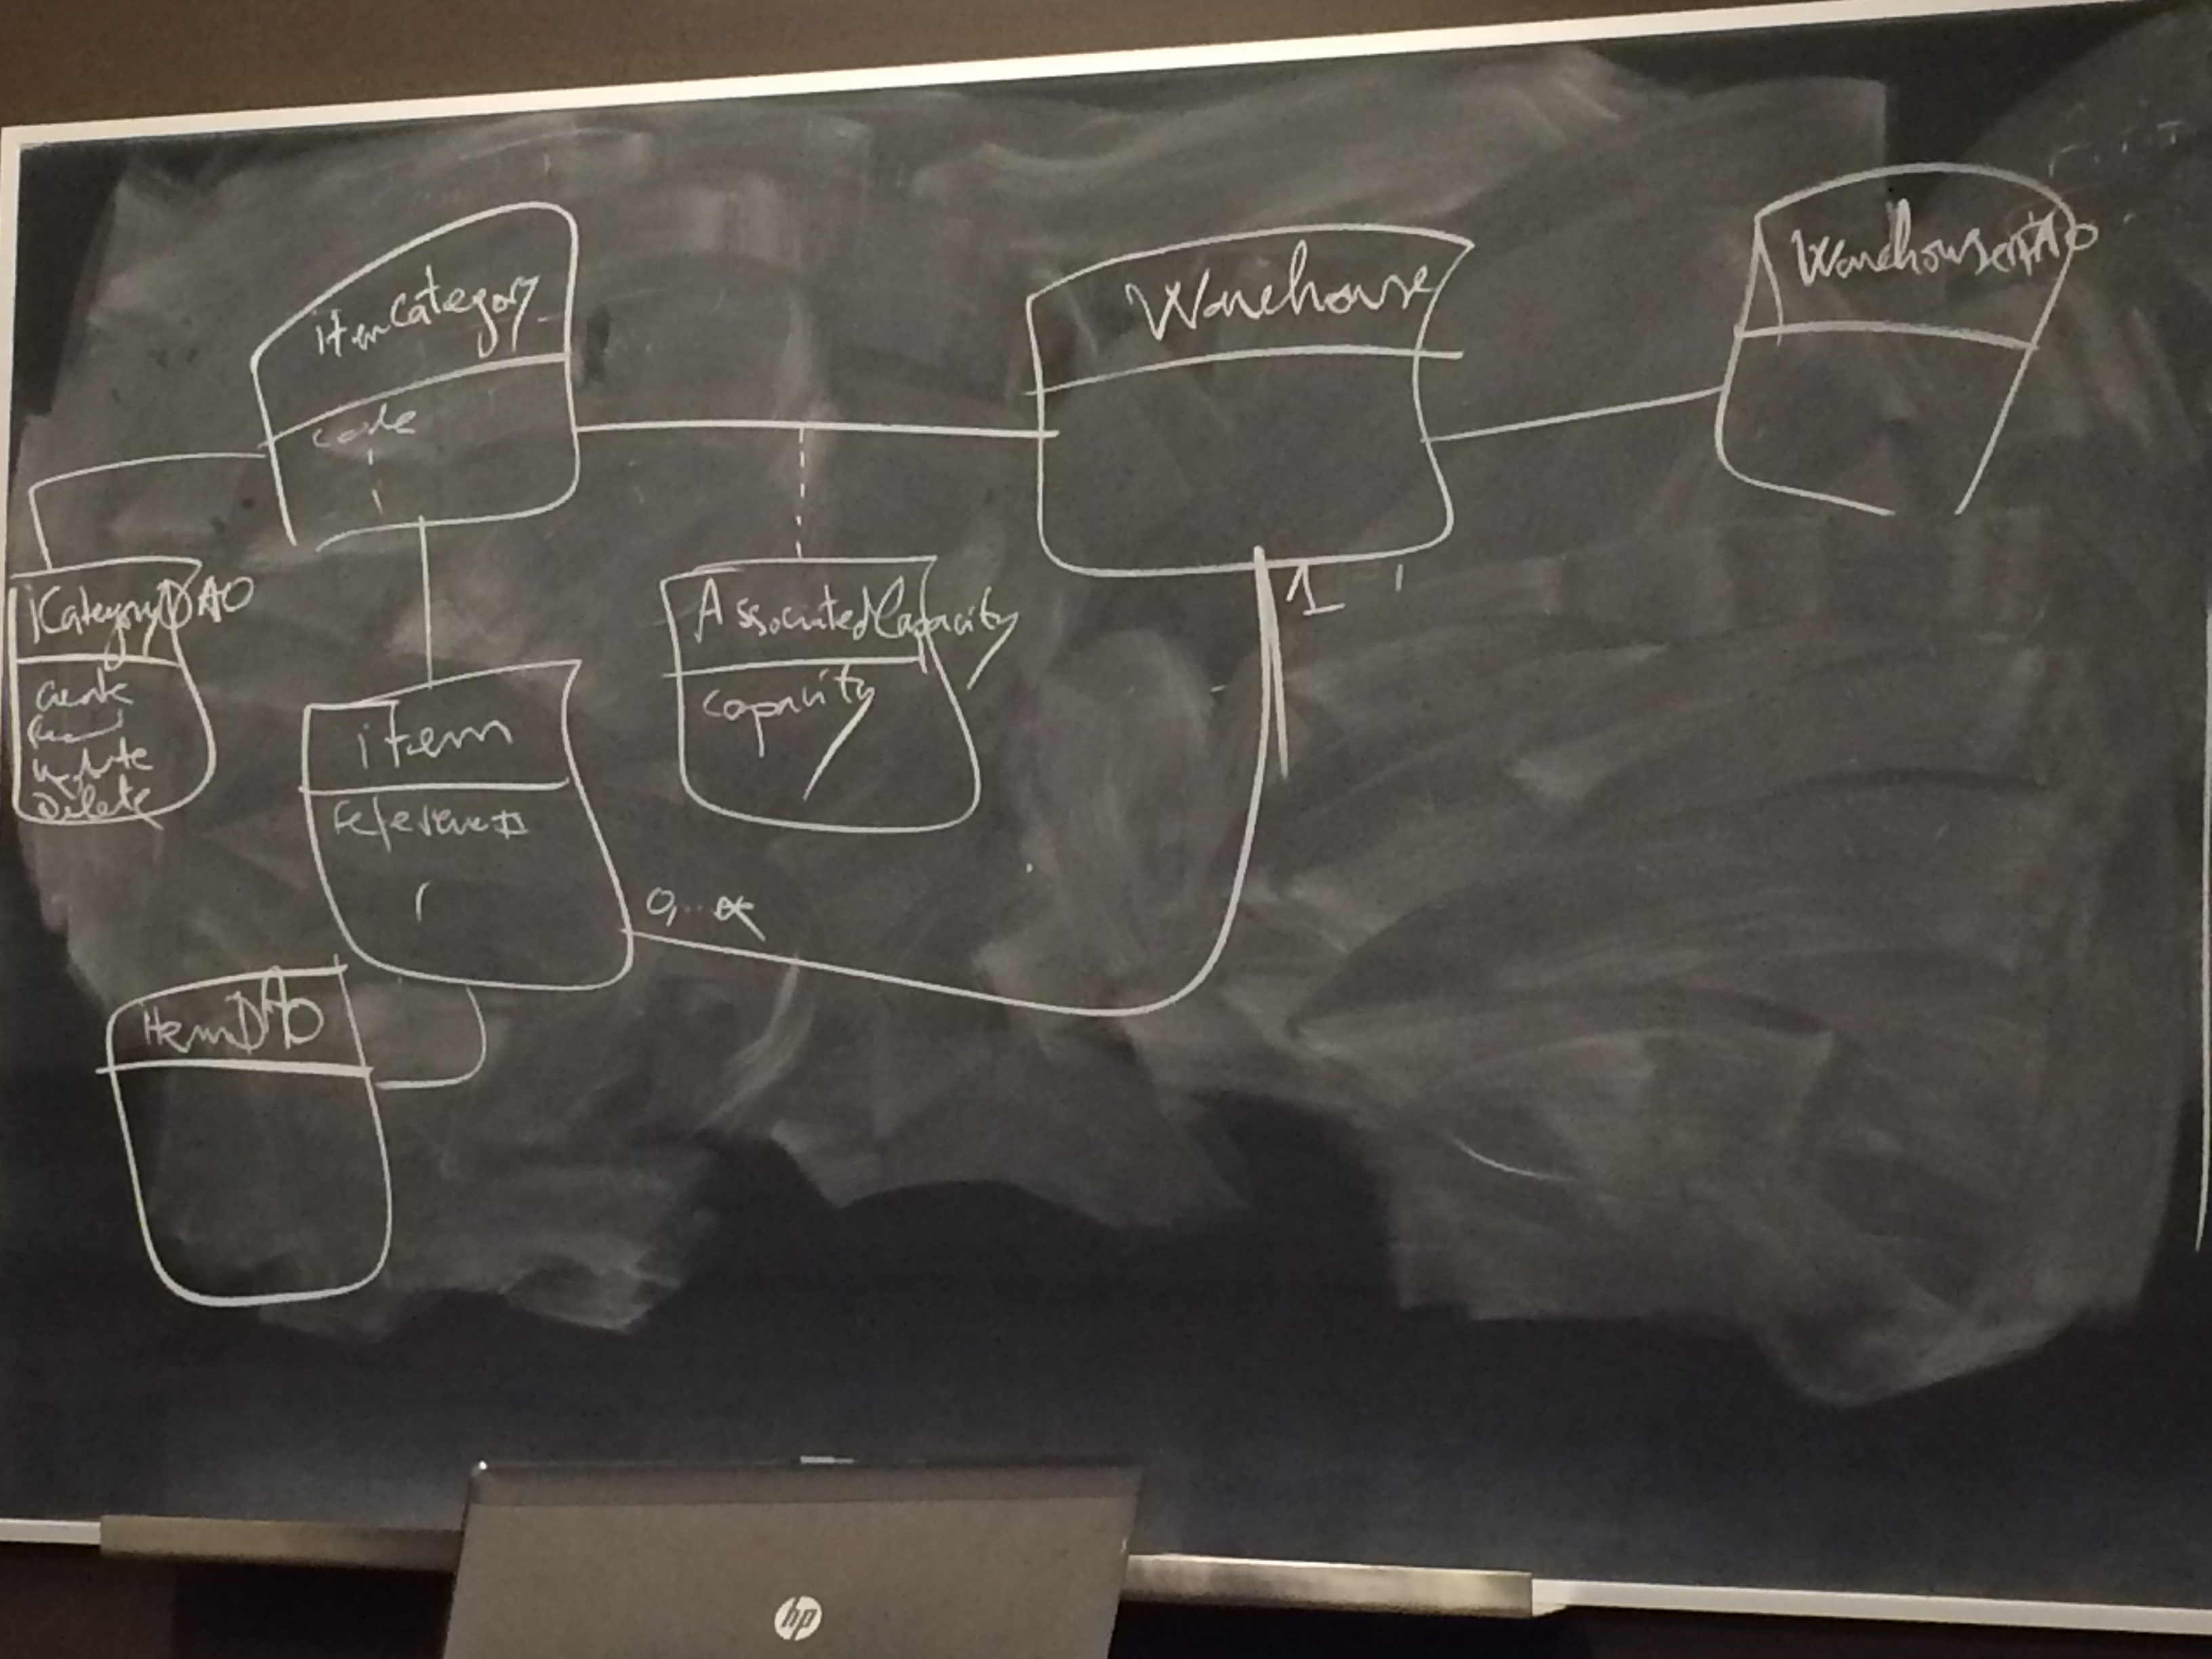 itemCategory
code
Warehouse
WarehouseDAO
1
iCategoryDAO
Create
Read
Update
Delete
AssociatedCapacity
capacity
item
0,...*
ItemDAO
hp